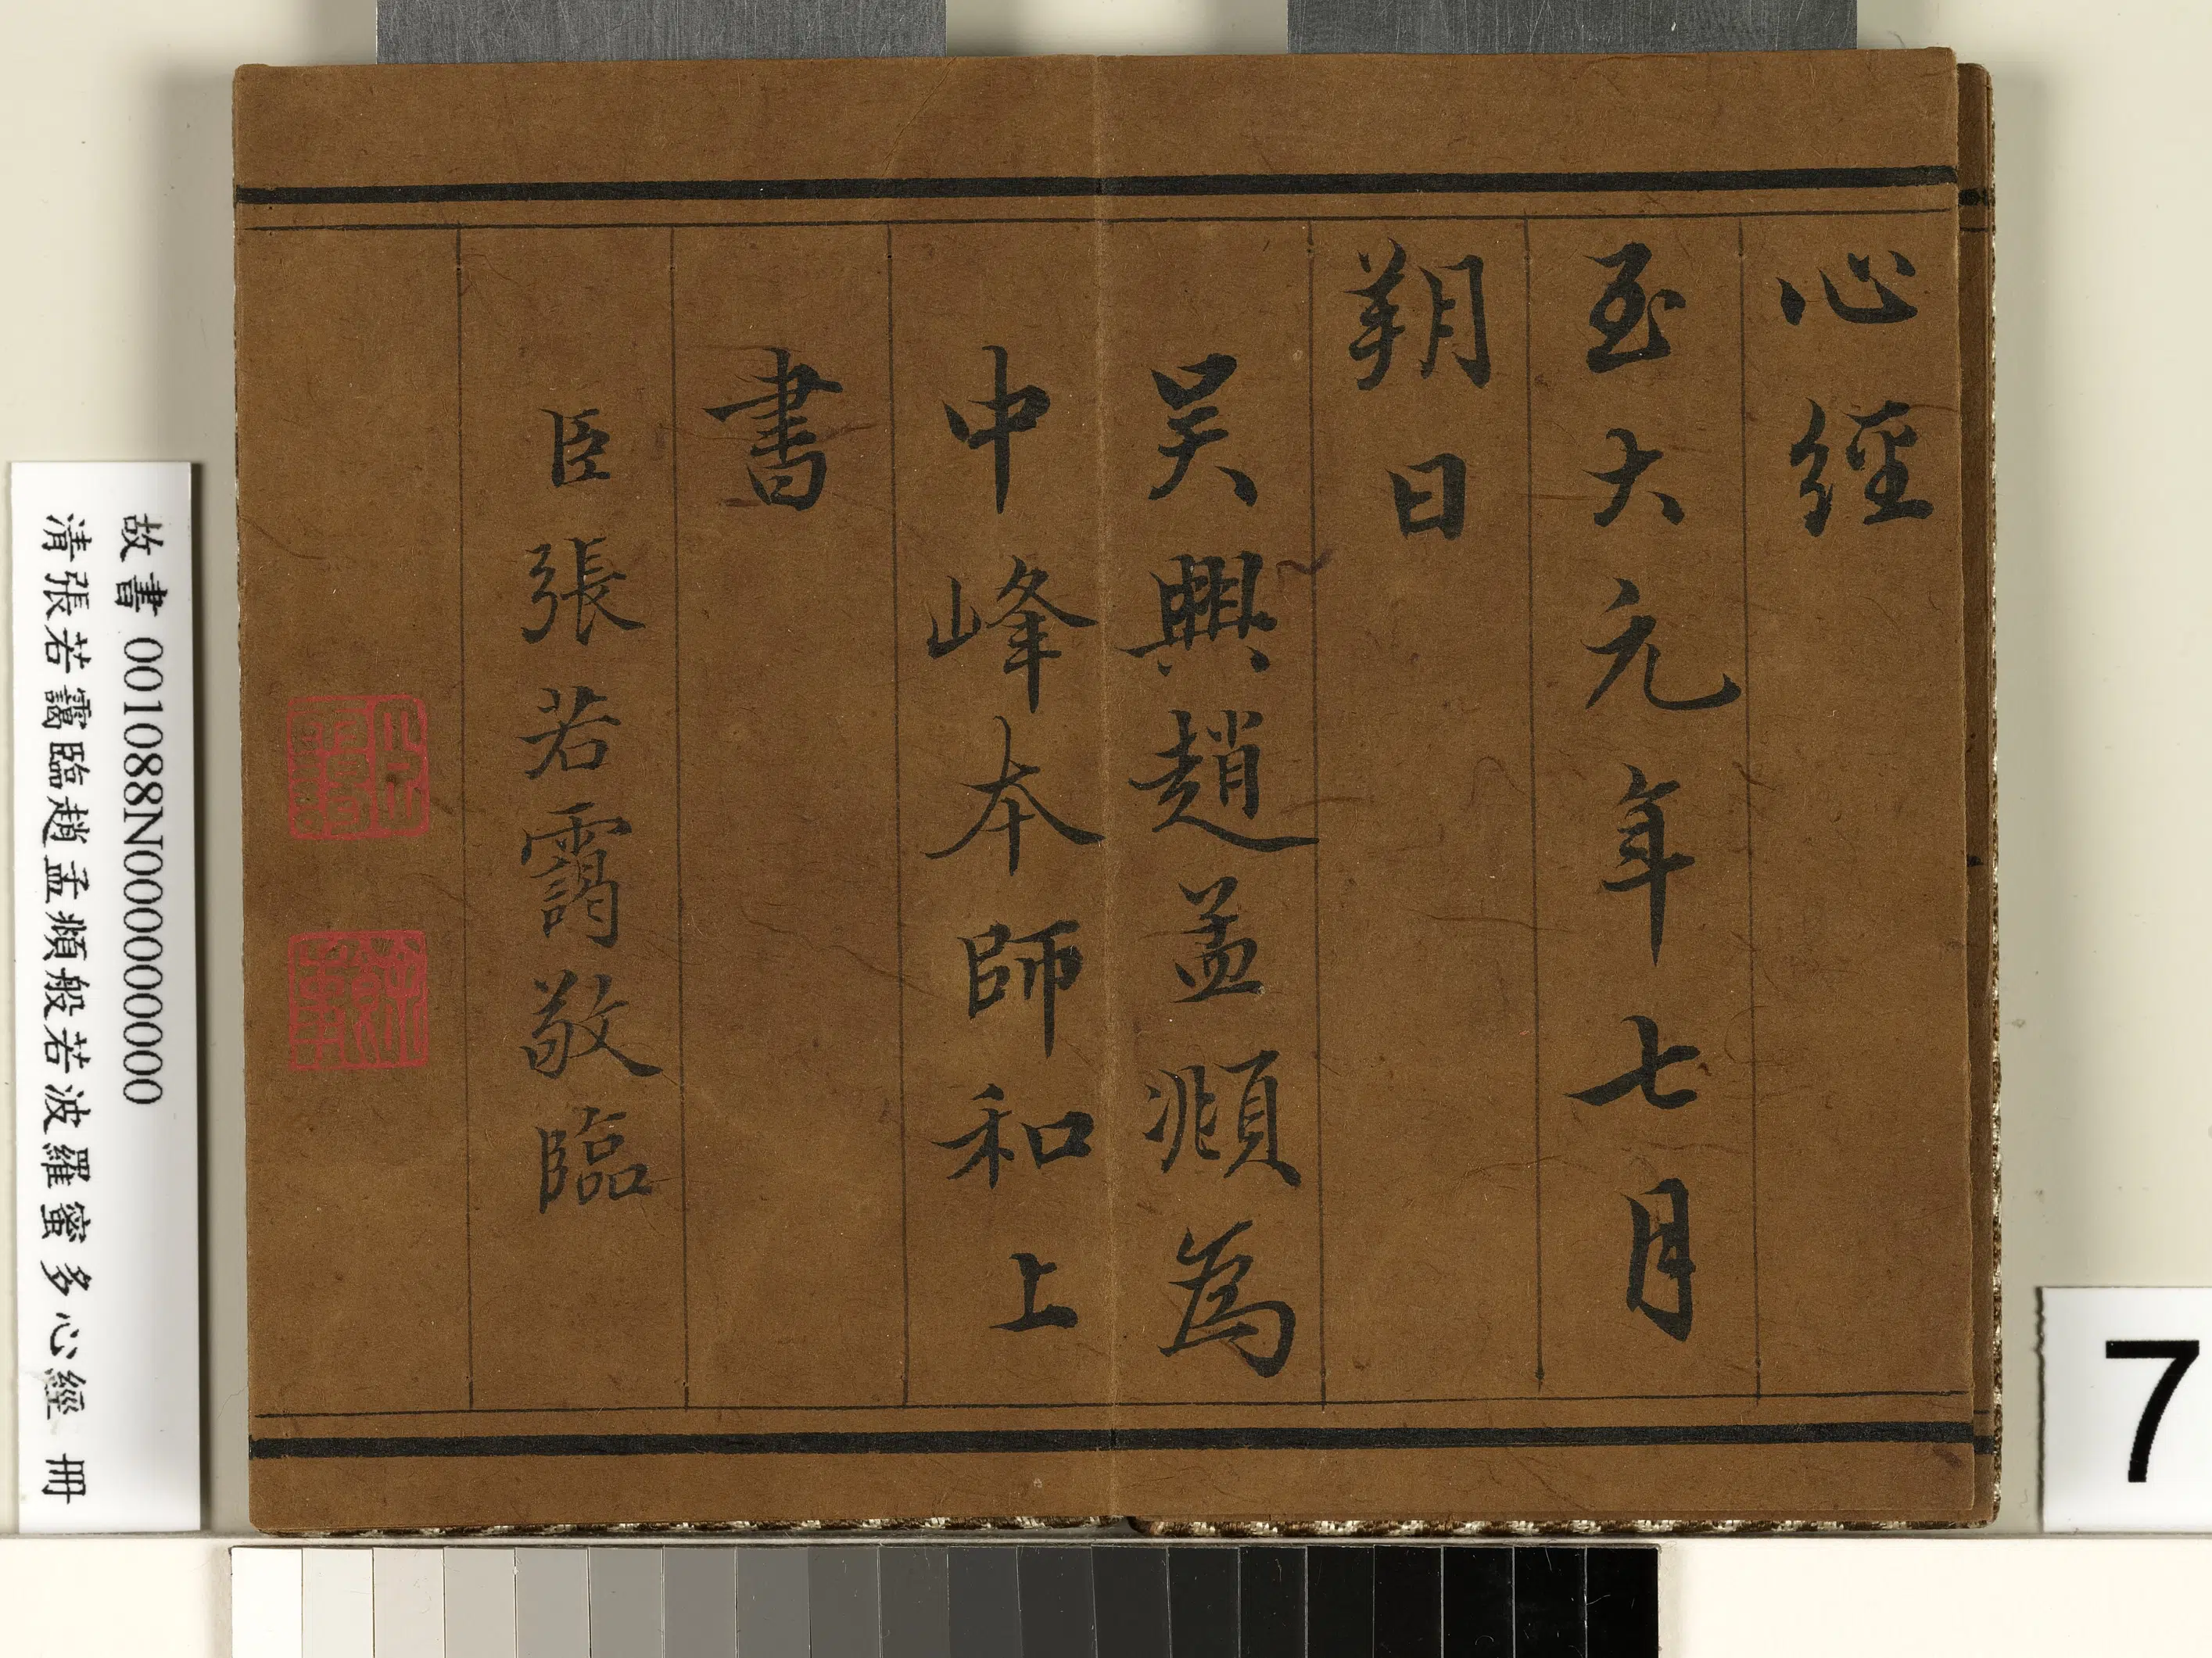 心經
至大元年七月
朔日
吴興趙孟頫為
中峰本師和上
書
臣張若靄敬臨
故書 001088N000000000
清張若靄臨趙孟頫般若波羅蜜多心經 冊
7